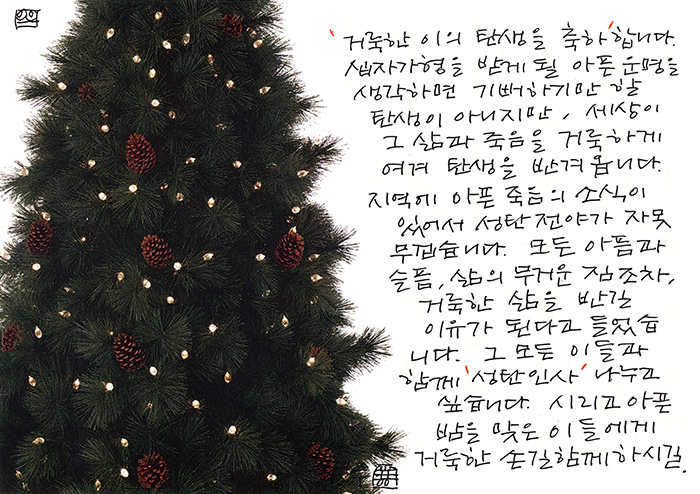 '거룩한 이의 탄생을 축하'합니다.
십자가형을 받게 될 아픈 운명을
생각하면 기뻐하기만 할
탄생이 아니지만, 세상이
그 삶과 죽음을 거룩하게
여겨 탄생을 반겨 옵니다.
지역에 아픈 죽음의 소식이
있어서 성탄 전야가 자못
무겁습니다. 모든 아픔과
슬픔, 삶의 무거운 짐조차,
거룩한 삶을 반길
이유가 된다고 들었습
니다. 그 모든 이들과
함께 '성탄인사' 나누고
싶습니다. 시리고 아픈
밤을 맞은 이들에게
거룩한 손길 함께 하시길.